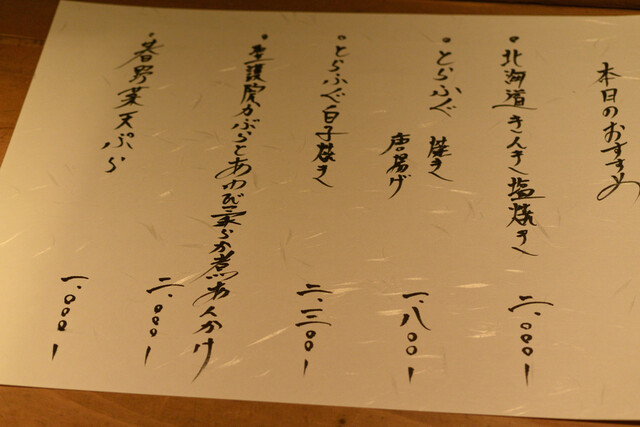 本日のおすすめ
・北海道きんき塩焼き 二、〇〇〇ー
・とらふぐ 焼き
唐揚げ 一、八〇〇ー
・とらふぐ白子焼き 二、三〇〇ー
・聖護院かぶらとあわび柔らか煮あんかけ 二、〇〇〇ー
・春野菜天ぷら 一、〇〇〇ー